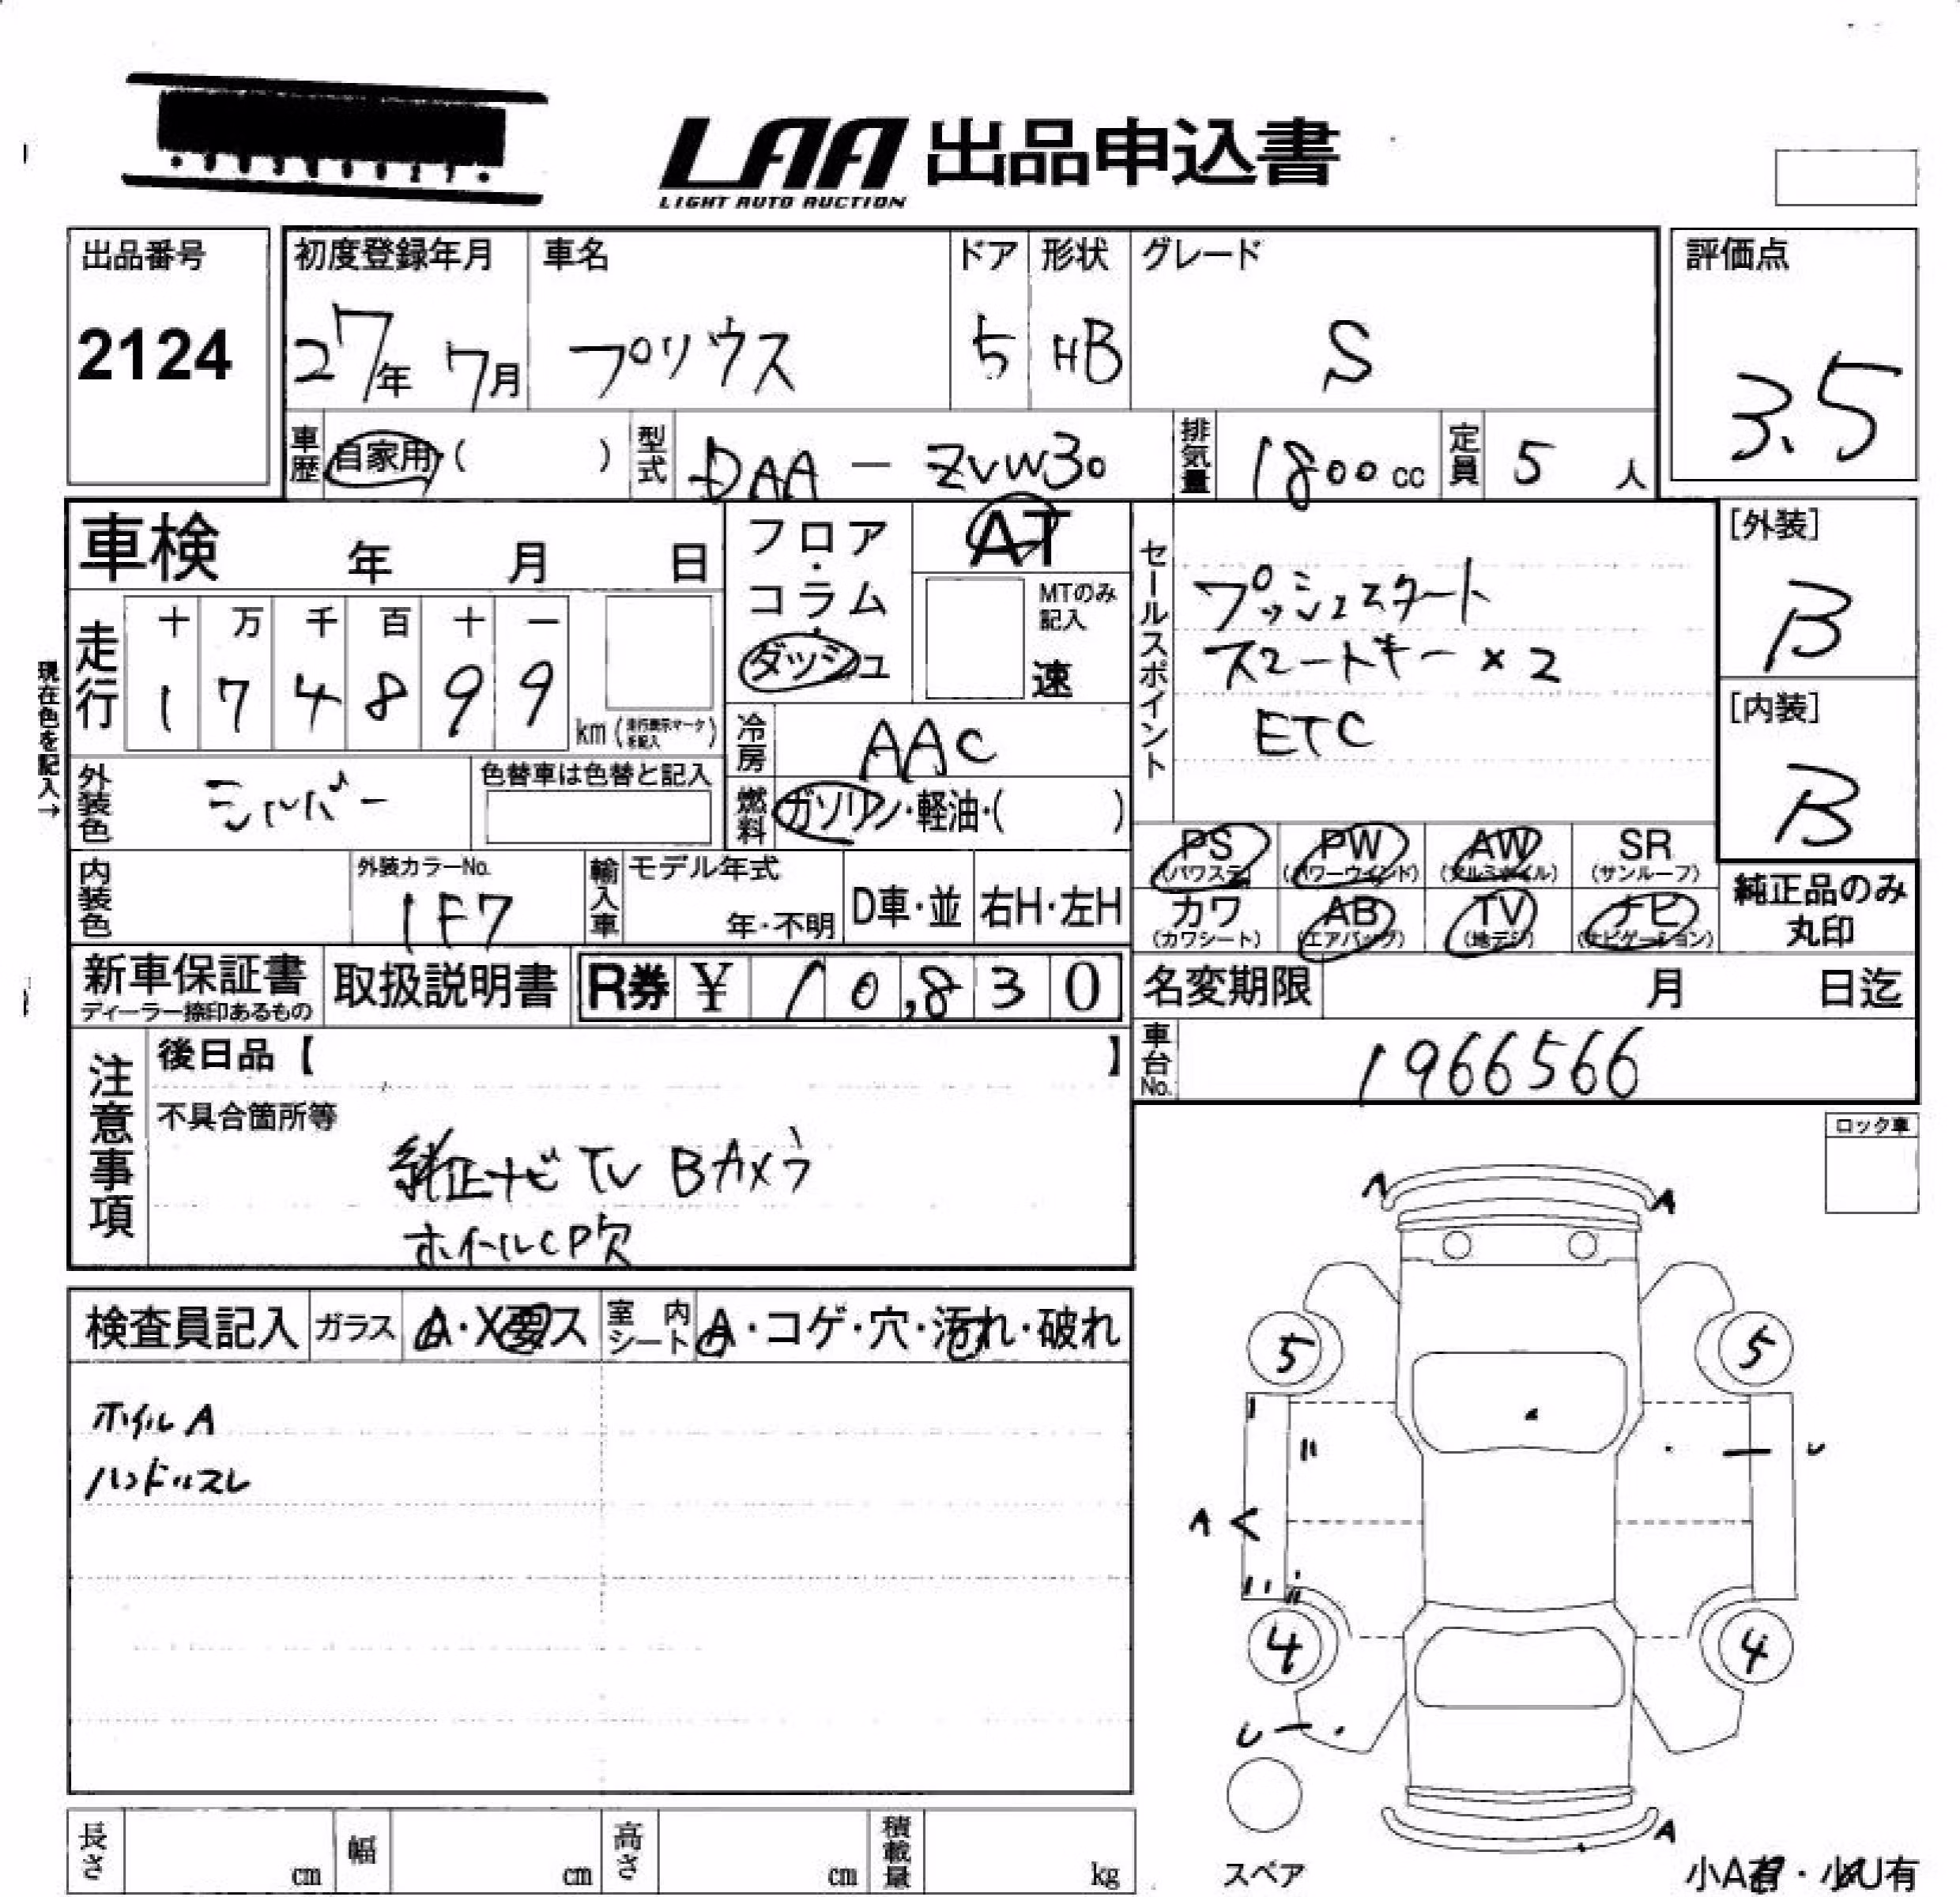 LAA 出品申込書
LIGHT AUTO AUCTION
出品番号
2124
初度登録年月
27年 7月
車名
プリウス
ドア
5
形状
HB
グレード
S
評価点
3.5
車歴 自家用・( )
型式 DAA - ZVW30
排気量 1800 cc
定員 5 人
車検 年 月 日
フロア・コラム・ダッシュ
AT
MTのみ記入
速
セールスポイント
プッシュスタート
スマートキー×2
ETC
[外装]
B
[内装]
B
現在色を記入→
走行
十 万 千 百 十 一
1 7 4 8 9 9
km (走行表示マークを記入)
冷房 AAC
外装色 シルバー
色替車は色替と記入
燃料 ガソリン・軽油・( )
PS (パワステ) PW (パワーウインド) AW (アルミホイル) SR (サンルーフ)
カワ (カワシート) AB (エアバッグ) TV (地デジ) ナビ (ナビゲーション)
純正品のみ丸印
内装色
外装カラーNo.
1F7
輸入車
モデル年式
年・不明
D車・並
右H・左H
新車保証書
ディーラー捺印あるもの
取扱説明書
R券 ¥ 10,830
名変期限 月 日迄
車台No. 1966566
注意事項
後日品【 】
不具合箇所等
純正ナビ TV Bカメラ
ホイールCP欠
ロック車
検査員記入
ガラス A・X要ス
室内シート A・コゲ・穴・汚れ・破れ
ホイル A
ハンドルスレ
A A
5 5
A
U
4 4
U
A
スペア
小A有・小U有
長さ cm
幅 cm
高さ cm
積載量 kg